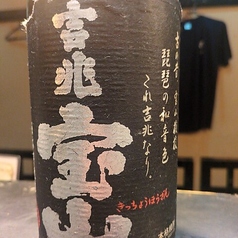 吉兆
宝山
琵琶の和音色
これ吉兆なり
きっちょうほうざん